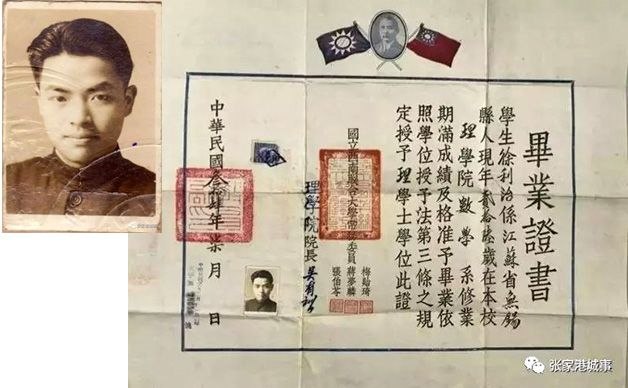 畢業證書
學生徐利治係江蘇省無錫
縣人現年貳拾陸歲在本校
理學院數學系修業
期滿成績及格准予畢業依
照學位授予法第三條之規
定授予理學士學位此證
國立西南聯合大學常務委員
梅貽琦
蔣夢麟
張伯苓
理學院院長 吳有訓
中華民國叁肆年柒月 日
张家港城事